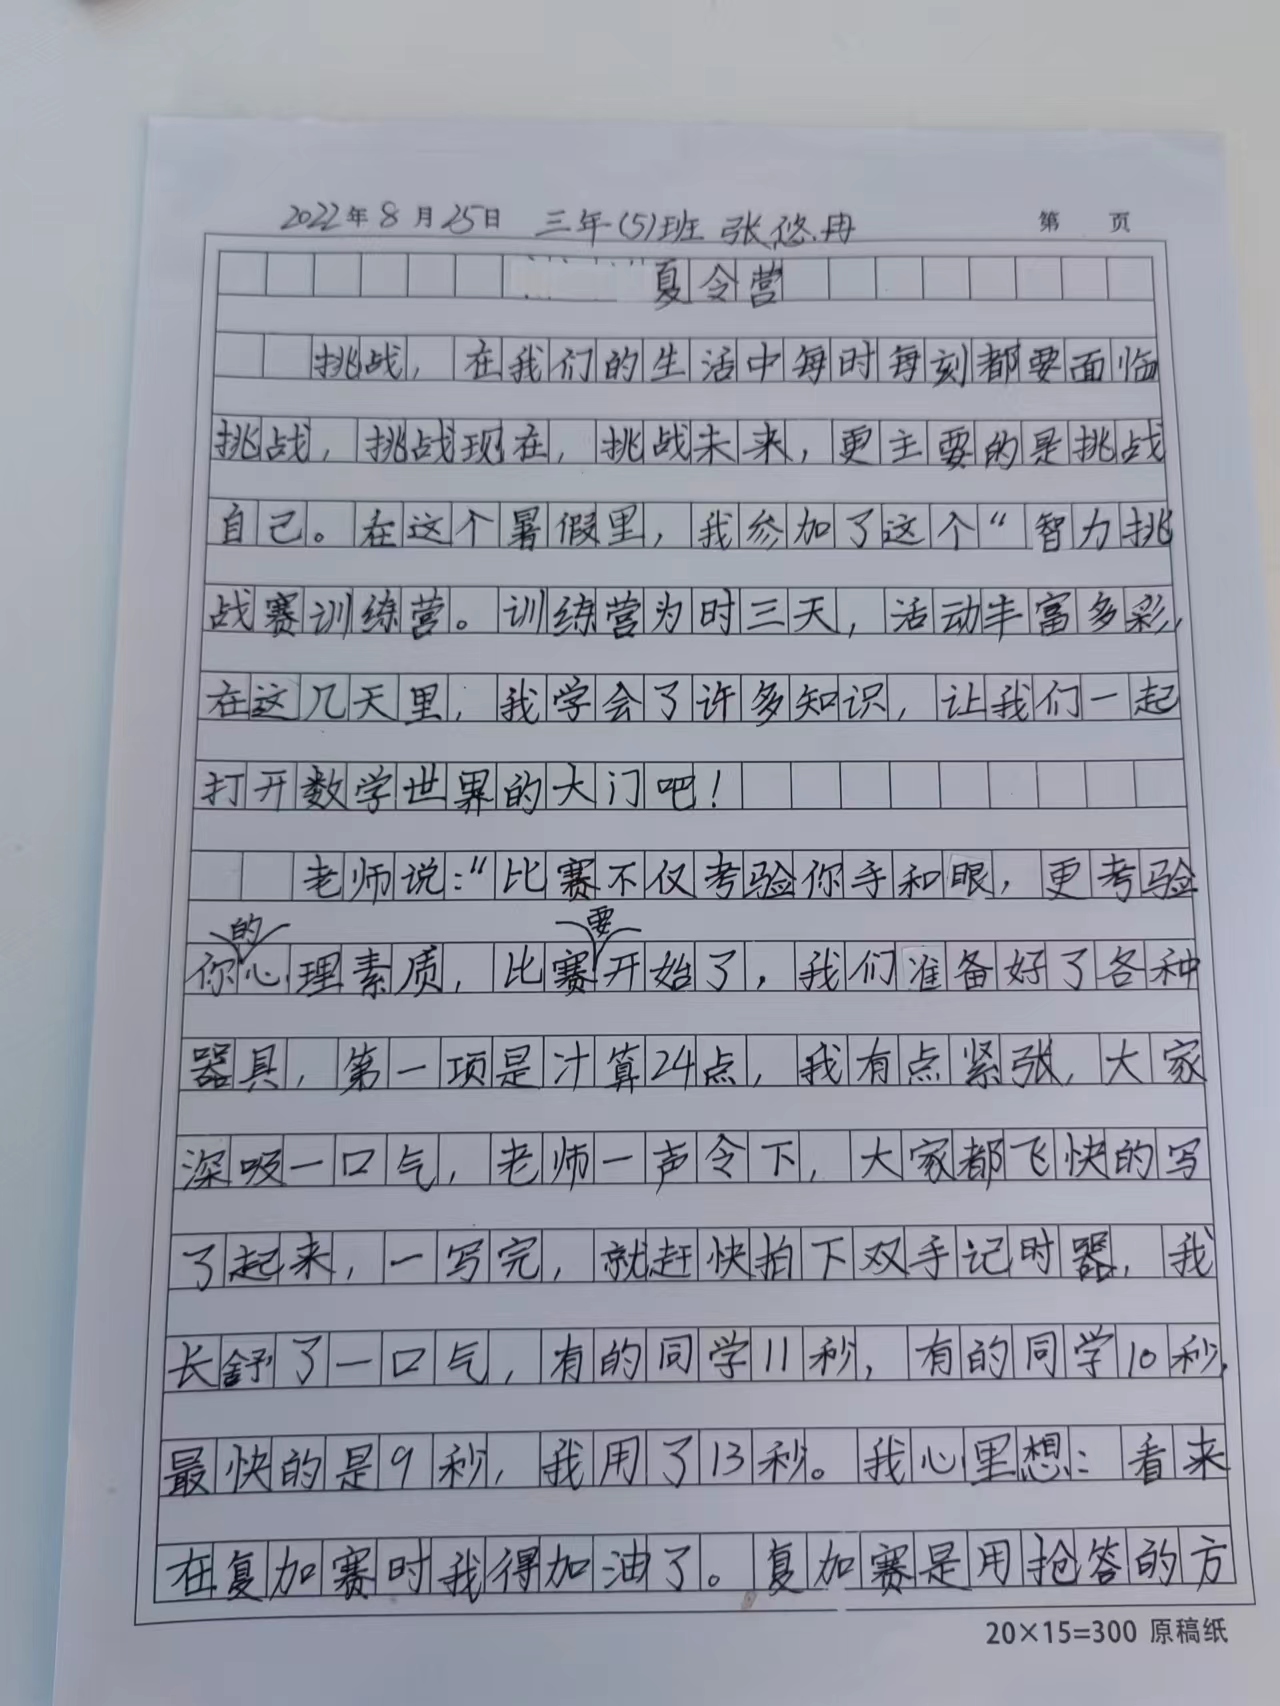 2022年8月25日 三年(5)班 张悠冉 第 页
夏令营
挑战，在我们的生活中每时每刻都要面临
挑战，挑战现在，挑战未来，更主要的是挑战
自己。在这个暑假里，我参加了这个“智力挑
战赛训练营。训练营为时三天，活动丰富多彩，
在这几天里，我学会了许多知识，让我们一起
打开数学世界的大门吧！
老师说：“比赛不仅考验你手和眼，更考验
你的心理素质，比赛要开始了，我们准备好了各种
器具，第一项是计算24点，我有点紧张，大家
深吸一口气，老师一声令下，大家都飞快的写
了起来，一写完，就赶快拍下双手记时器，我
长舒了一口气，有的同学11秒，有的同学10秒，
最快的是9秒，我用了13秒。我心里想：看来
在复加赛时我得加油了。复加赛是用抢答的方
20×15=300 原稿纸